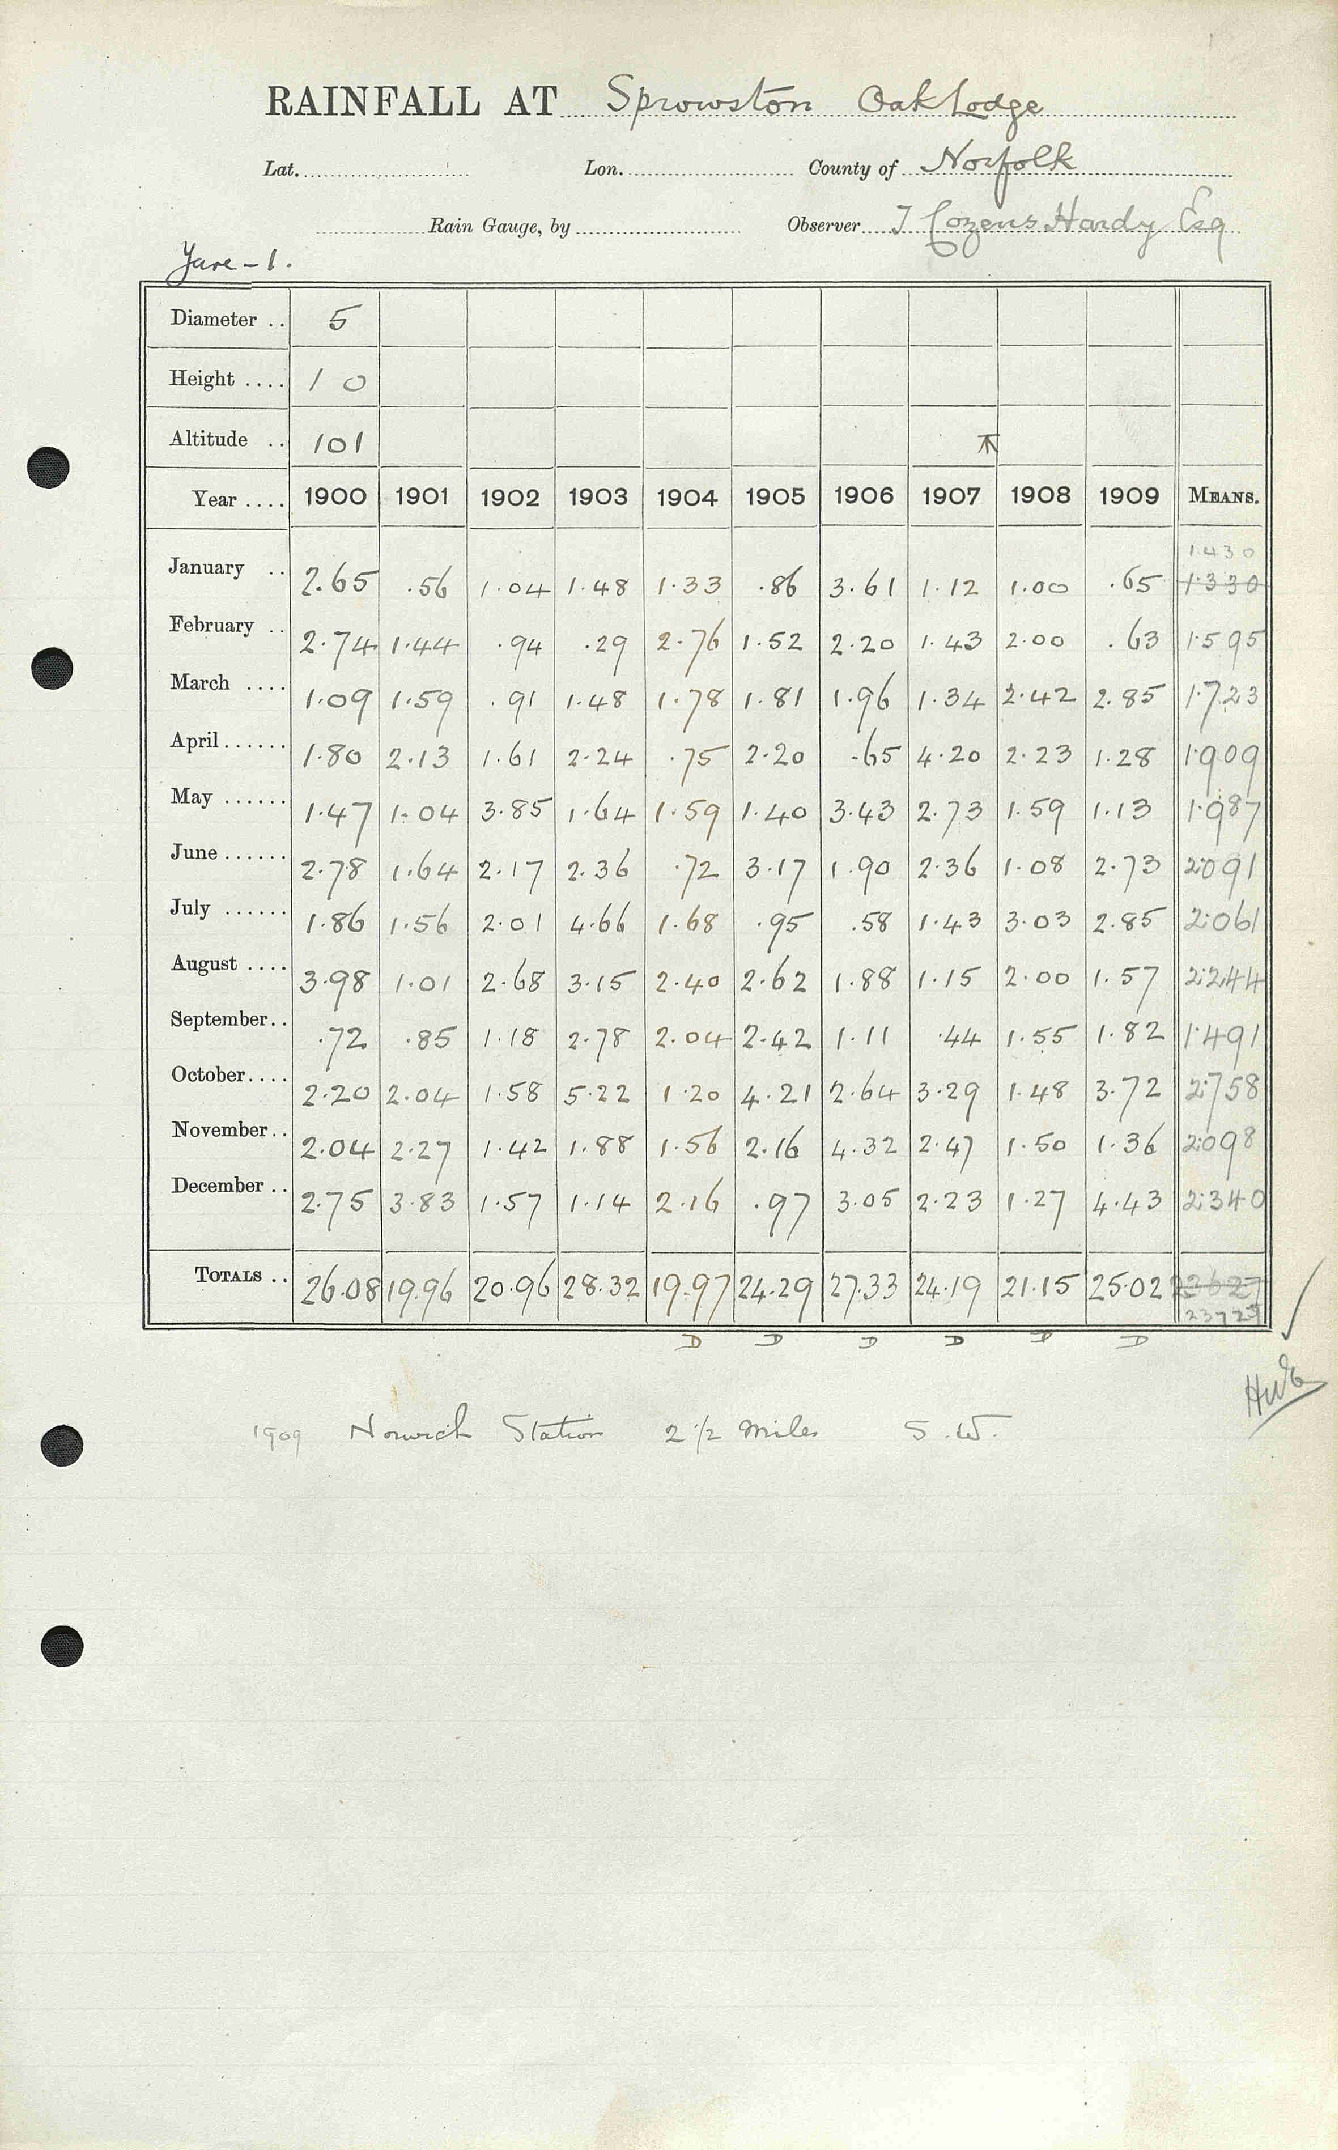 RAINFALL AT Sprowston Oak Lodge
Lat. Lon. County of Norfolk
Rain Gauge, by Observer J Cozens Hardy Esq
Yare - 1.
Diameter .. 5
Height .... 1 0
Altitude .. 101
Year .... 1900 1901 1902 1903 1904 1905 1906 1907 1908 1909 MEANS.
1.430
January .. 2.65 .56 1.04 1.48 1.33 .86 3.61 1.12 1.00 .65 1.330
February .. 2.74 1.44 .94 .29 2.76 1.52 2.20 1.43 2.00 .63 1.595
March .... 1.09 1.59 .91 1.48 1.78 1.81 1.96 1.34 2.42 2.85 1.723
April ...... 1.80 2.13 1.61 2.24 .75 2.20 .65 4.20 2.23 1.28 1.909
May ...... 1.47 1.04 3.85 1.64 1.59 1.40 3.43 2.73 1.59 1.13 1.987
June ...... 2.78 1.64 2.17 2.36 .72 3.17 1.90 2.36 1.08 2.73 2.091
July ...... 1.86 1.56 2.01 4.66 1.68 .95 .58 1.43 3.03 2.85 2.061
August .... 3.98 1.01 2.68 3.15 2.40 2.62 1.88 1.15 2.00 1.57 2.244
September .. .72 .85 1.18 2.78 2.04 2.42 1.11 .44 1.55 1.82 1.491
October .... 2.20 2.04 1.58 5.22 1.20 4.21 2.64 3.29 1.48 3.72 2.758
November .. 2.04 2.27 1.42 1.88 1.56 2.16 4.32 2.47 1.50 1.36 2.098
December .. 2.75 3.83 1.57 1.14 2.16 .97 3.05 2.23 1.27 4.43 2.340
TOTALS .. 26.08 19.96 20.96 28.32 19.97 24.29 27.33 24.19 21.15 25.02 23627
23727
D D D D D D
1909 Norwich Station 2 1/2 miles S.W.